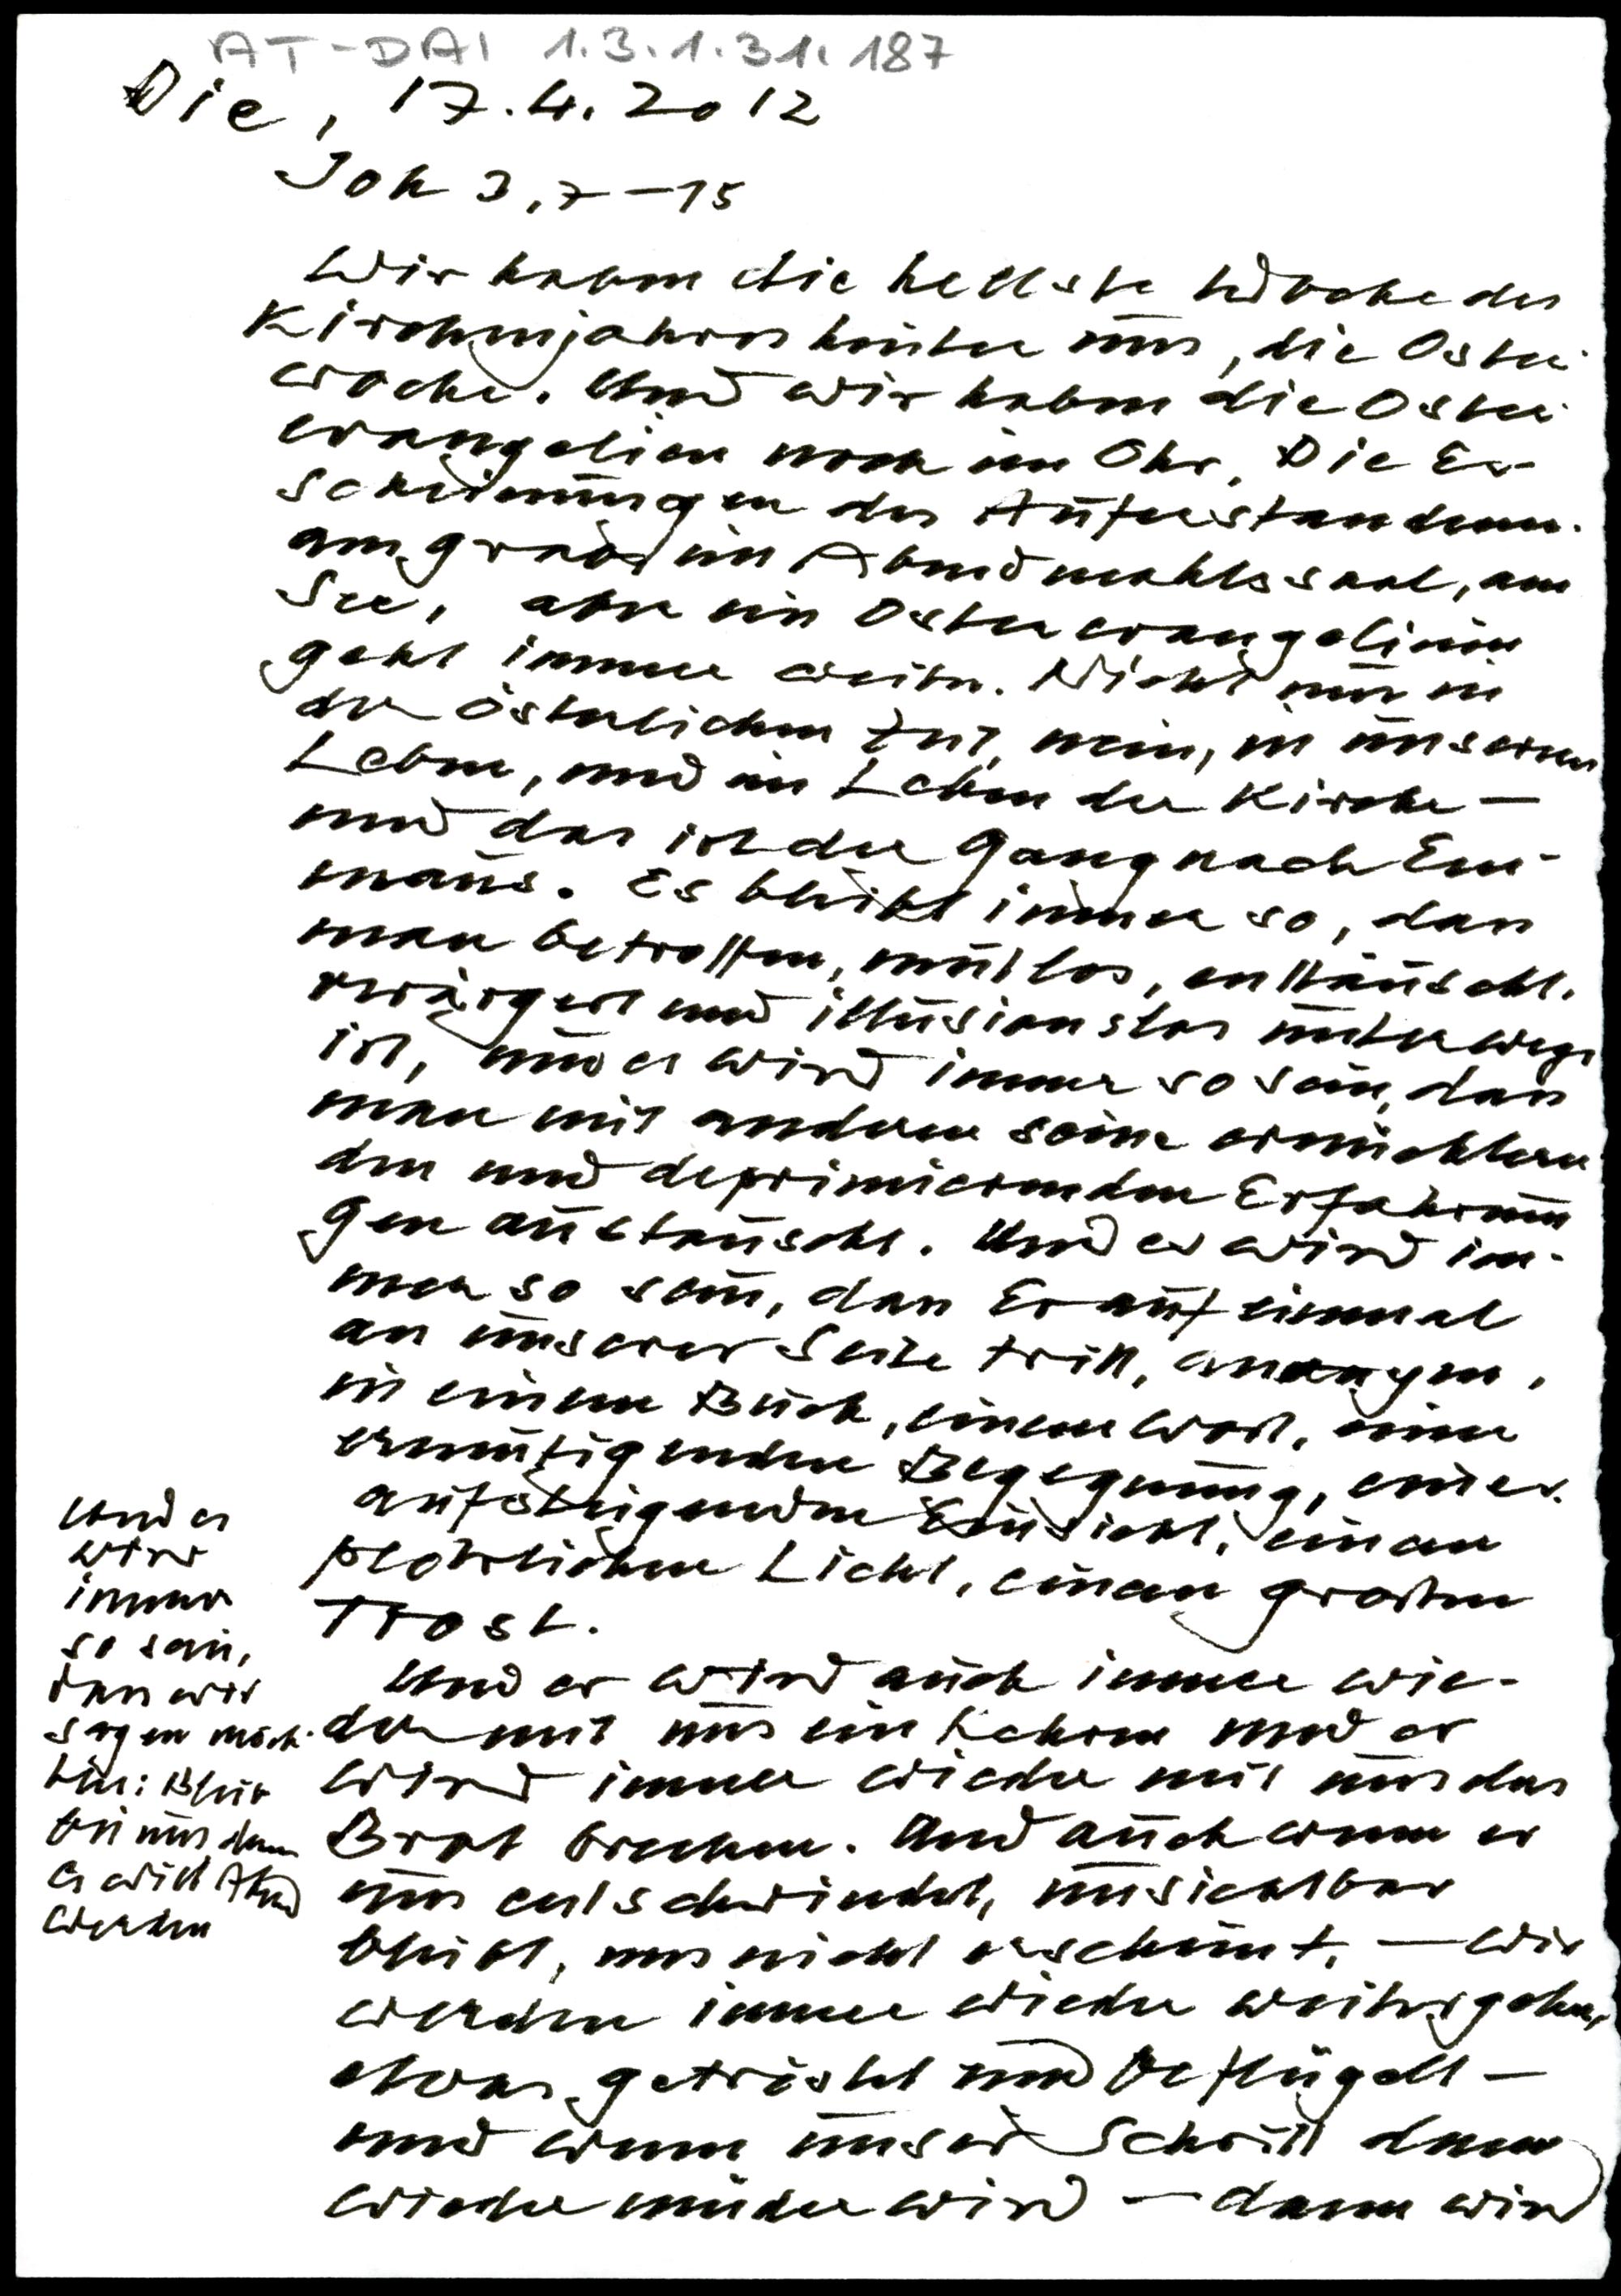 AT-DAI 1.3.1.31.187
Die, 17.4.2012
Joh 3,7-15
Wir haben die hellste Woche des
Kirchenjahres hinter uns, die Oster-
woche. Und wir haben die Oster-
evangelien noch im Ohr. Die Er-
scheinungen des Auferstandenen.
am Grab, im Abendmahlssaal, am
See, aber ein Osterevangelium
geht immer weiter. Nicht nur in
der österlichen Zeit, nein, in unserem
Leben, und im Leben der Kirche —
und das ist der Gang nach Em-
maus. Es bleibt immer so, dass
man betroffen, mutlos, enttäuscht,
verärgert und illusionslos unterwegs
ist, und es wird immer so sein, dass
man mit anderen seine ernüchtern-
den und deprimierenden Erfahrun
gen austauscht. Und es wird im-
mer so sein, dass Er auf einmal
an unserer Seite tritt, anonym,
in einem Buch, einem Wort, einer
ermutigenden Begegnung, einer
aufsteigenden Einsicht, einem
plötzlichen Licht, einem großen
Trost.
Und er wird auch immer wie-
der mit uns einkehren und er
wird immer wieder mit uns das
Brot brechen. Und auch wenn er
uns entschwindet, unsichtbar
bleibt, uns nicht erscheint, — wir
werden immer wieder weitergehen,
etwas getröstet und beflügelt —
und wenn unser Schritt dann
wieder müder wird — dann wird
Und es
wird
immer
so sein,
dass wir
sagen möch-
ten: Bleib
bei uns, denn
es will Abend
werden